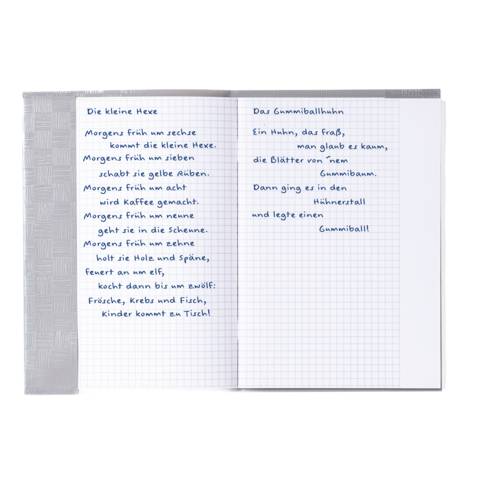 Die kleine Hexe
Morgens früh um sechse
kommt die kleine Hexe.
Morgens früh um sieben
schabt sie gelbe Rüben.
Morgens früh um acht
wird Kaffee gemacht.
Morgens früh um neune
geht sie in die Scheune.
Morgens früh um zehne
holt sie Holz und Späne,
feuert an um elf,
kocht dann bis um zwölf:
Frösche, Krebs und Fisch,
Kinder kommt zu Tisch!
Das Gummiballhuhn
Ein Huhn, das fraß,
man glaub es kaum,
die Blätter von ´nem
Gummibaum.
Dann ging es in den
Hühnerstall
und legte einen
Gummiball!